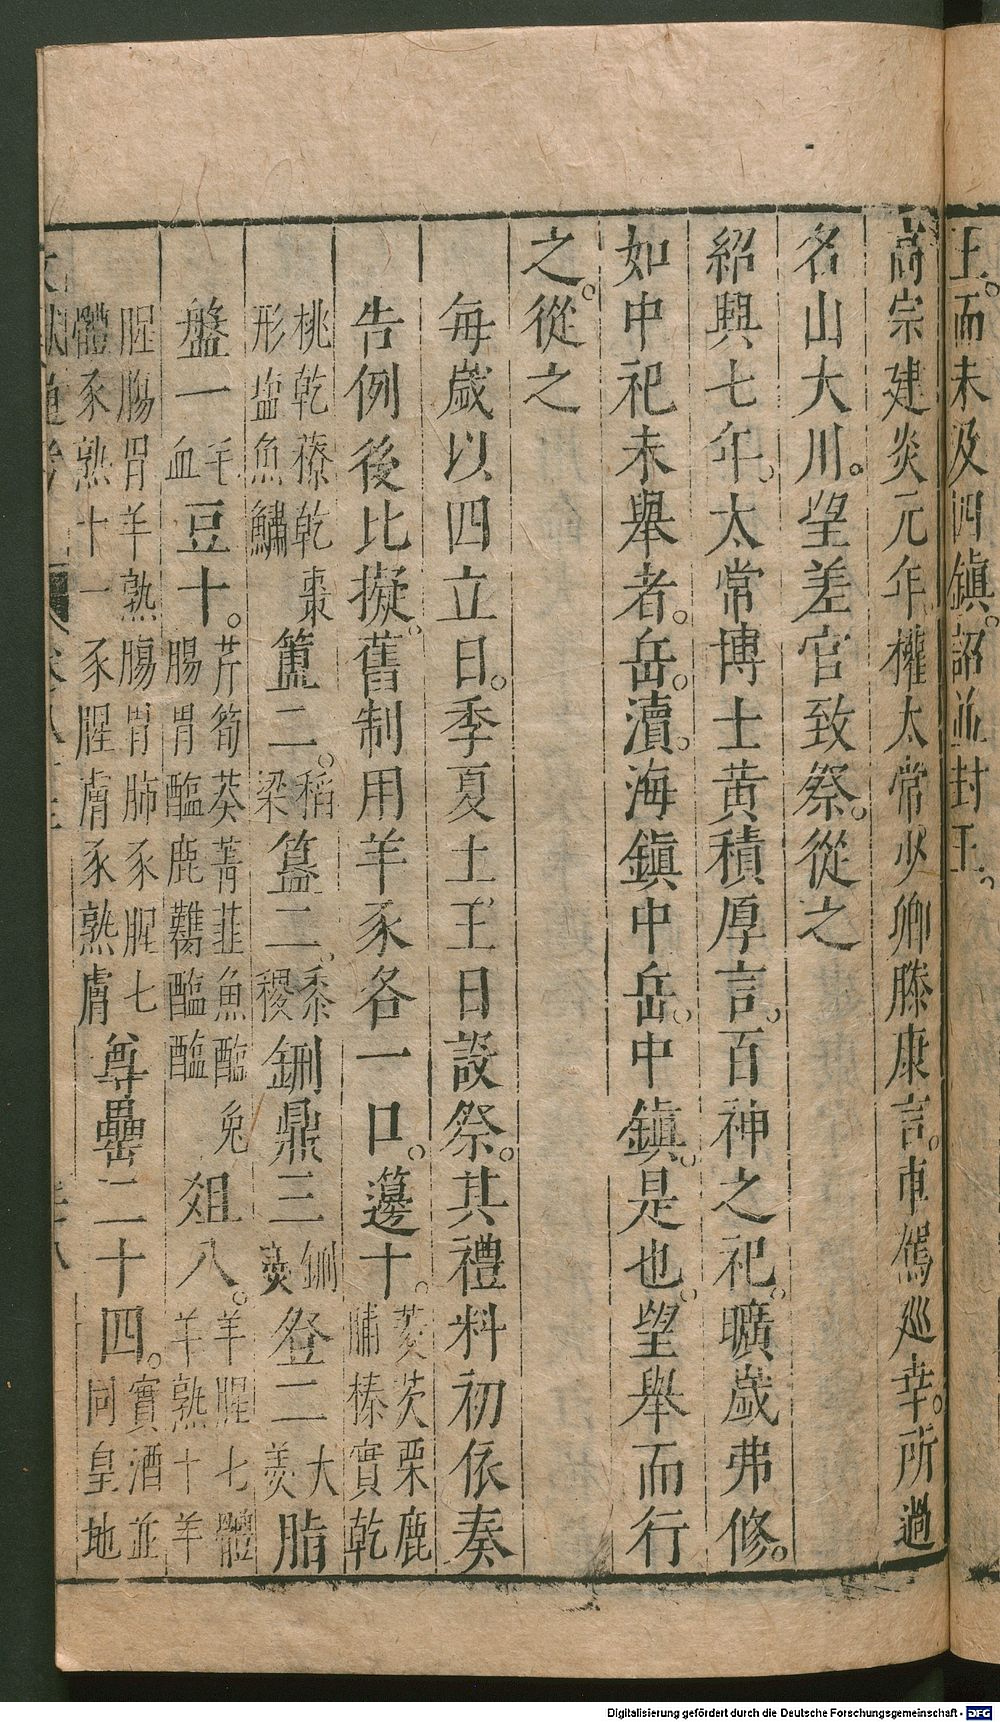 王。而未及四鎮。詔並封王。
高宗建炎元年權太常少卿滕康言。車駕巡幸。所過
名山大川。望差官致祭。從之
紹興七年。太常博士黃積厚言。百神之祀。曠歲弗修。
如中祀未舉者。岳。瀆。海鎮中岳。中鎮。是也。望舉而行
之。從之
每歲以四立日。季夏土王日設祭。其禮料初依奏
告例後比擬。舊制用羊豕各一口。籩十。菱茨栗鹿
脯榛實乾
桃乾䕩乾棗
形塩魚鱐
簠二。稻
梁
簋二。黍
稷
鉶鼎三鉶
羹
登二大
羹
脂
盤一毛
血
豆十。芹筍葵菁韭魚醢兔
腸胃醢鹿臡醢醢
爼八。羊腥七體
羊熟十羊
腥膓胃羊熟膓胃肺豕腥七
體豕熟十一豕腥膚豕熟膚
尊罍二十四。實酒並
同皇地
Digitalisierung gefördert durch die Deutsche Forschungsgemeinschaft - DFG